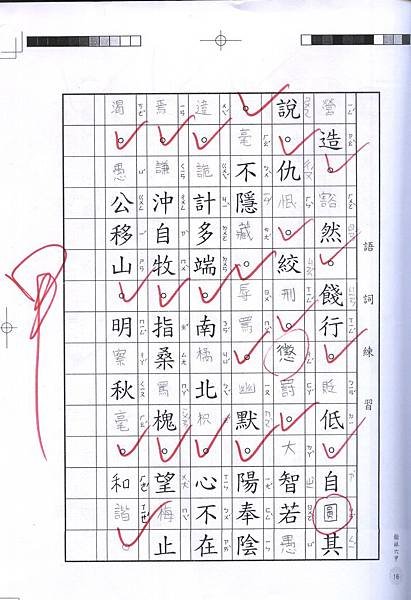 語詞練習
營造。豁然。餞行。貶低。自圓其
說。仇恨。絞刑。懲罰。大智若愚
。毫不隱藏。辱罵。幽默。陽奉陰
違。詭計多端。南橘北枳。心不在
焉。謙沖自牧。指桑罵槐。望梅止
渴。愚公移山。明察秋毫。和諧。
翰林六下
16